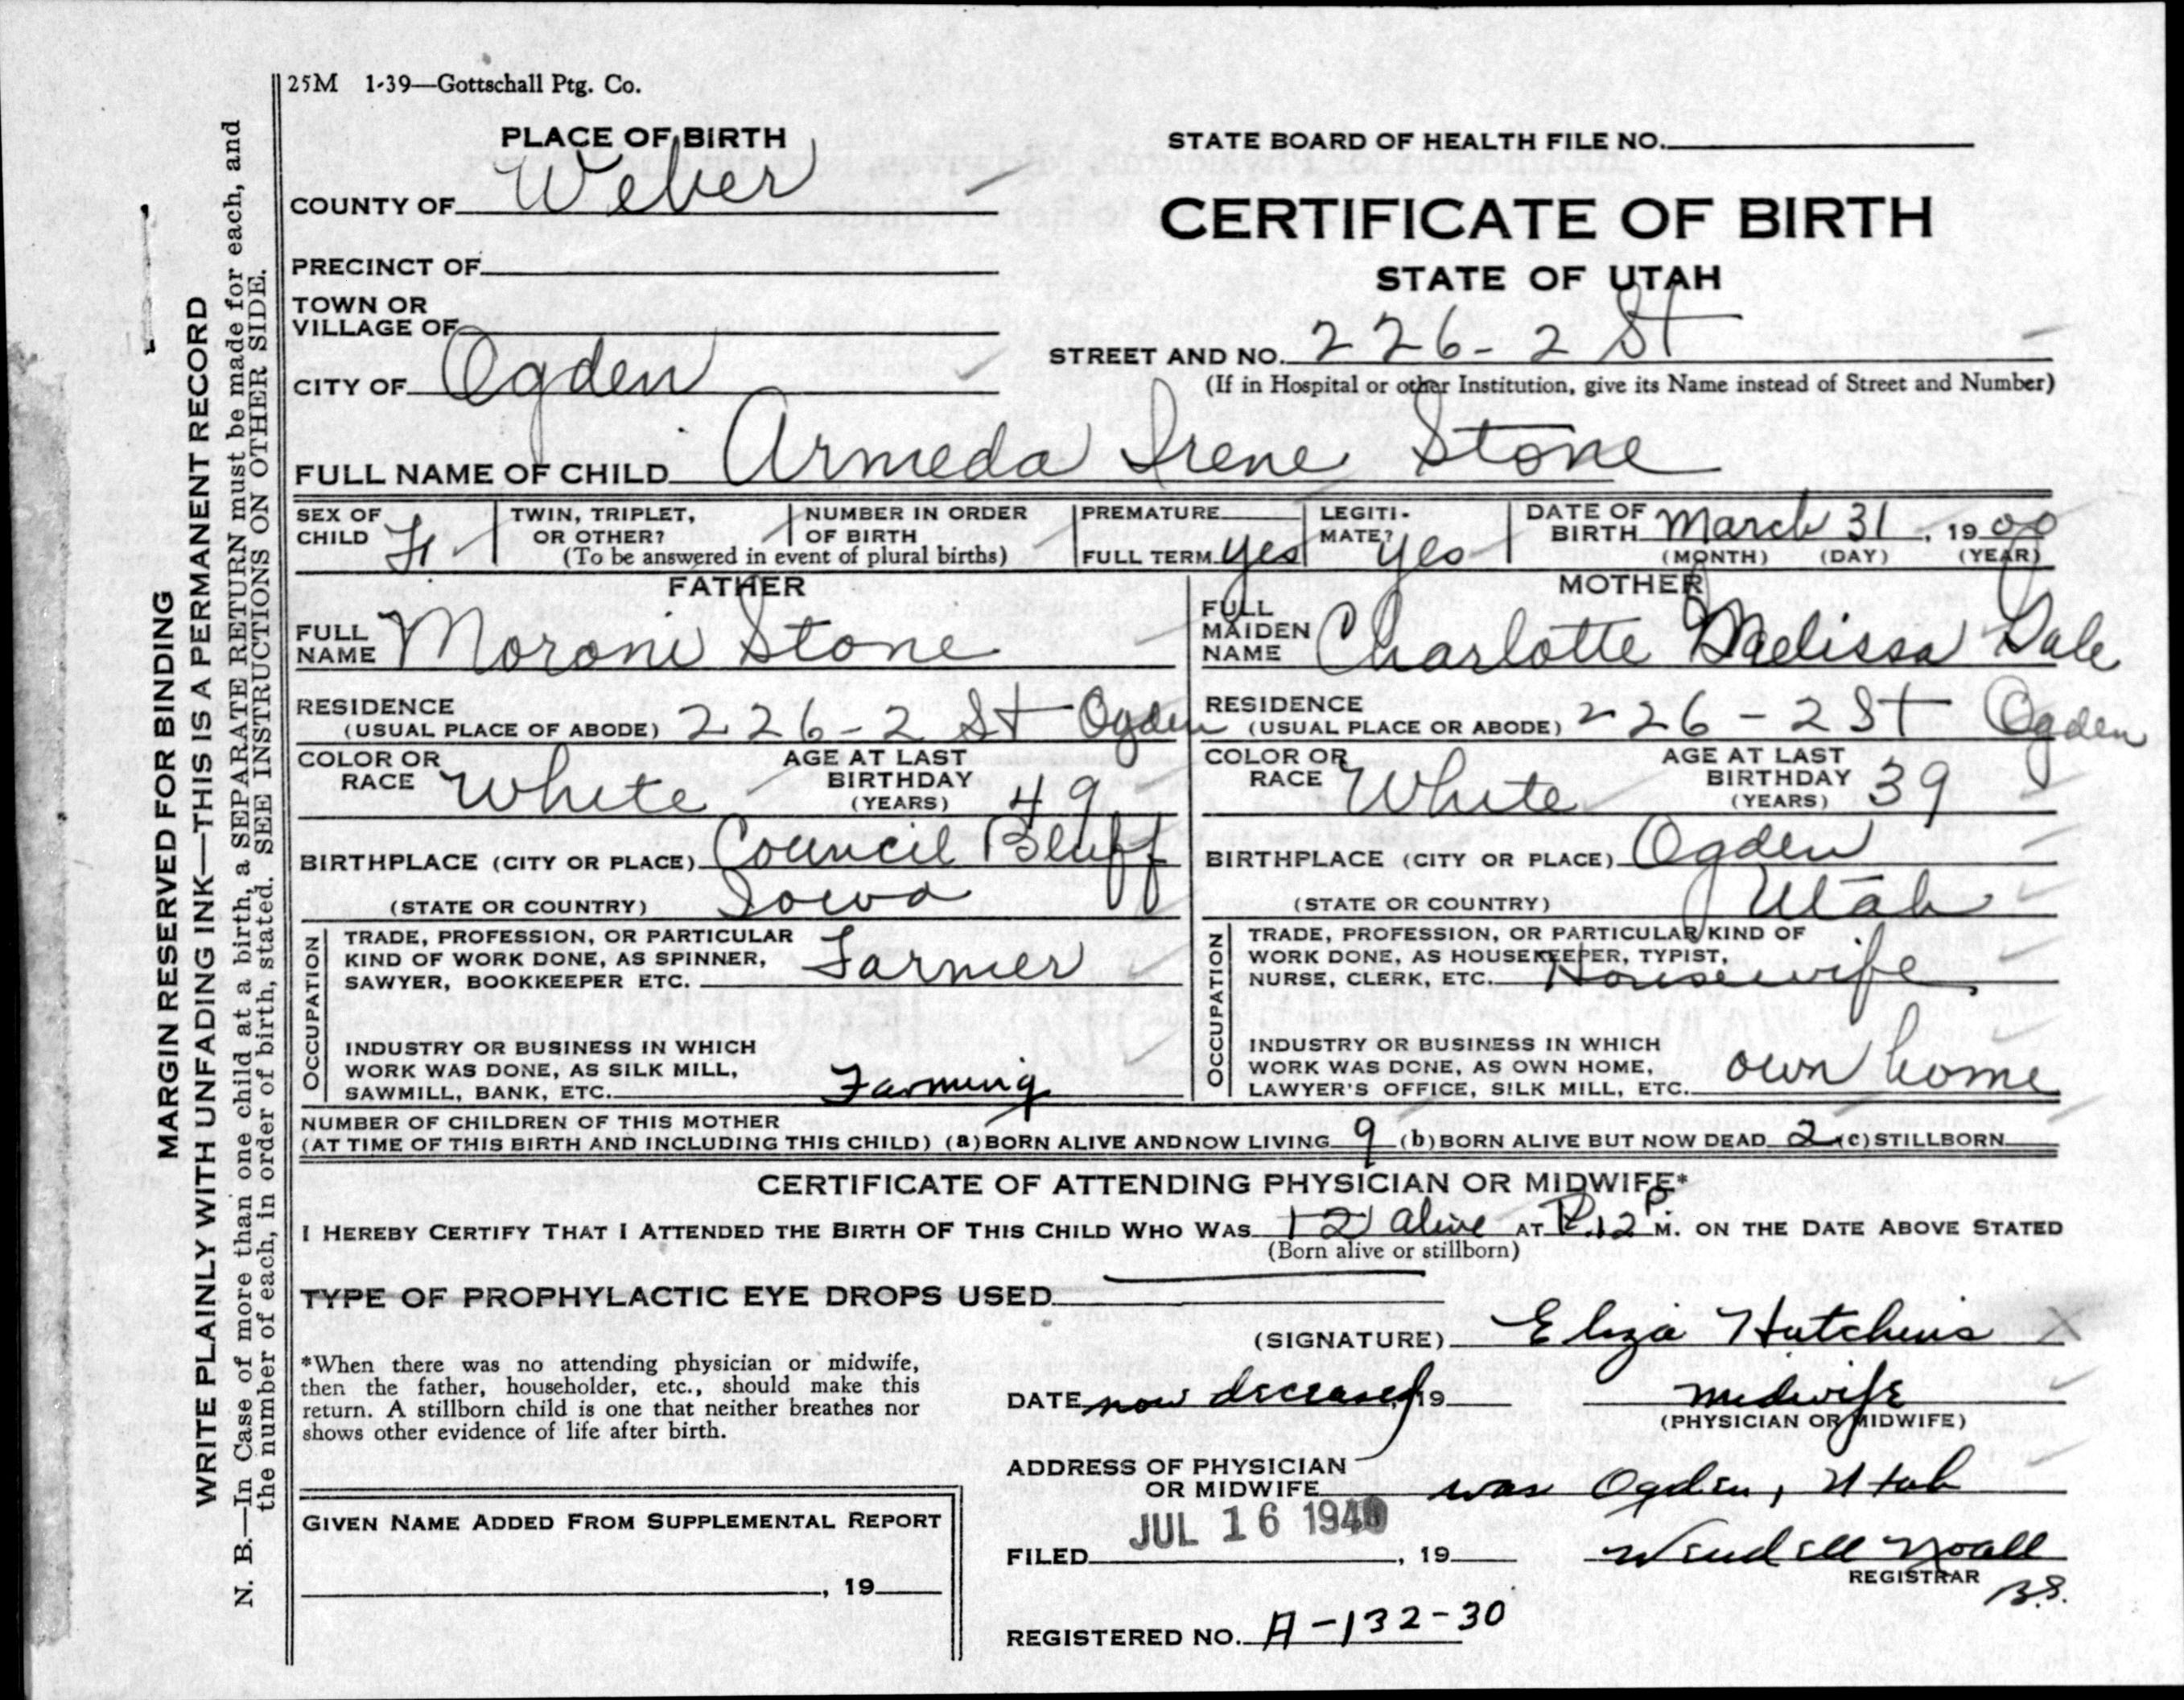 25M 1-39—Gottschall Ptg. Co.
PLACE OF BIRTH
COUNTY OF Weber
PRECINCT OF
TOWN OR
VILLAGE OF
CITY OF Ogden
STATE BOARD OF HEALTH FILE NO.
CERTIFICATE OF BIRTH
STATE OF UTAH
STREET AND NO. 226-2 St
(If in Hospital or other Institution, give its Name instead of Street and Number)
FULL NAME OF CHILD Armeda Irene Stone
SEX OF CHILD F.
TWIN, TRIPLET, OR OTHER?
NUMBER IN ORDER OF BIRTH
(To be answered in event of plural births)
PREMATURE
FULL TERM yes
LEGITI-
MATE? yes
DATE OF BIRTH March 31, 1900
(MONTH) (DAY) (YEAR)
FATHER
FULL NAME Moroni Stone
RESIDENCE
(USUAL PLACE OF ABODE) 226-2 St Ogden
COLOR OR RACE White
AGE AT LAST BIRTHDAY (YEARS) 49
BIRTHPLACE (CITY OR PLACE) Council Bluff
(STATE OR COUNTRY) Iowa
OCCUPATION
TRADE, PROFESSION, OR PARTICULAR
KIND OF WORK DONE, AS SPINNER,
SAWYER, BOOKKEEPER ETC. Farmer
INDUSTRY OR BUSINESS IN WHICH
WORK WAS DONE, AS SILK MILL,
SAWMILL, BANK, ETC. Farming
MOTHER
FULL MAIDEN NAME Charlotte Melissa Dale
RESIDENCE
(USUAL PLACE OR ABODE) 226-2 St Ogden
COLOR OR RACE White
AGE AT LAST BIRTHDAY (YEARS) 39
BIRTHPLACE (CITY OR PLACE) Ogden
(STATE OR COUNTRY) Utah
OCCUPATION
TRADE, PROFESSION, OR PARTICULAR KIND OF
WORK DONE, AS HOUSEKEEPER, TYPIST,
NURSE, CLERK, ETC. Housewife
INDUSTRY OR BUSINESS IN WHICH
WORK WAS DONE, AS OWN HOME,
LAWYER'S OFFICE, SILK MILL, ETC. own home
NUMBER OF CHILDREN OF THIS MOTHER
(AT TIME OF THIS BIRTH AND INCLUDING THIS CHILD) (a) BORN ALIVE AND NOW LIVING 9 (b) BORN ALIVE BUT NOW DEAD 2 (c) STILLBORN
CERTIFICATE OF ATTENDING PHYSICIAN OR MIDWIFE*
I HEREBY CERTIFY THAT I ATTENDED THE BIRTH OF THIS CHILD WHO WAS alive AT 12 P M. ON THE DATE ABOVE STATED
(Born alive or stillborn)
TYPE OF PROPHYLACTIC EYE DROPS USED
(SIGNATURE) Eliza Hutchins X
*When there was no attending physician or midwife,
then the father, householder, etc., should make this
return. A stillborn child is one that neither breathes nor
shows other evidence of life after birth.
DATE now deceased, 19
midwife
(PHYSICIAN OR MIDWIFE)
ADDRESS OF PHYSICIAN
OR MIDWIFE was Ogden, Utah
GIVEN NAME ADDED FROM SUPPLEMENTAL REPORT
, 19
JUL 16 1940
FILED , 19
Wendell Noall
REGISTRAR
B.S.
REGISTERED NO. A-132-30
MARGIN RESERVED FOR BINDING
WRITE PLAINLY WITH UNFADING INK—THIS IS A PERMANENT RECORD
N. B.—In Case of more than one child at a birth, a SEPARATE RETURN must be made for each, and
the number of each, in order of birth, stated. SEE INSTRUCTIONS ON OTHER SIDE.